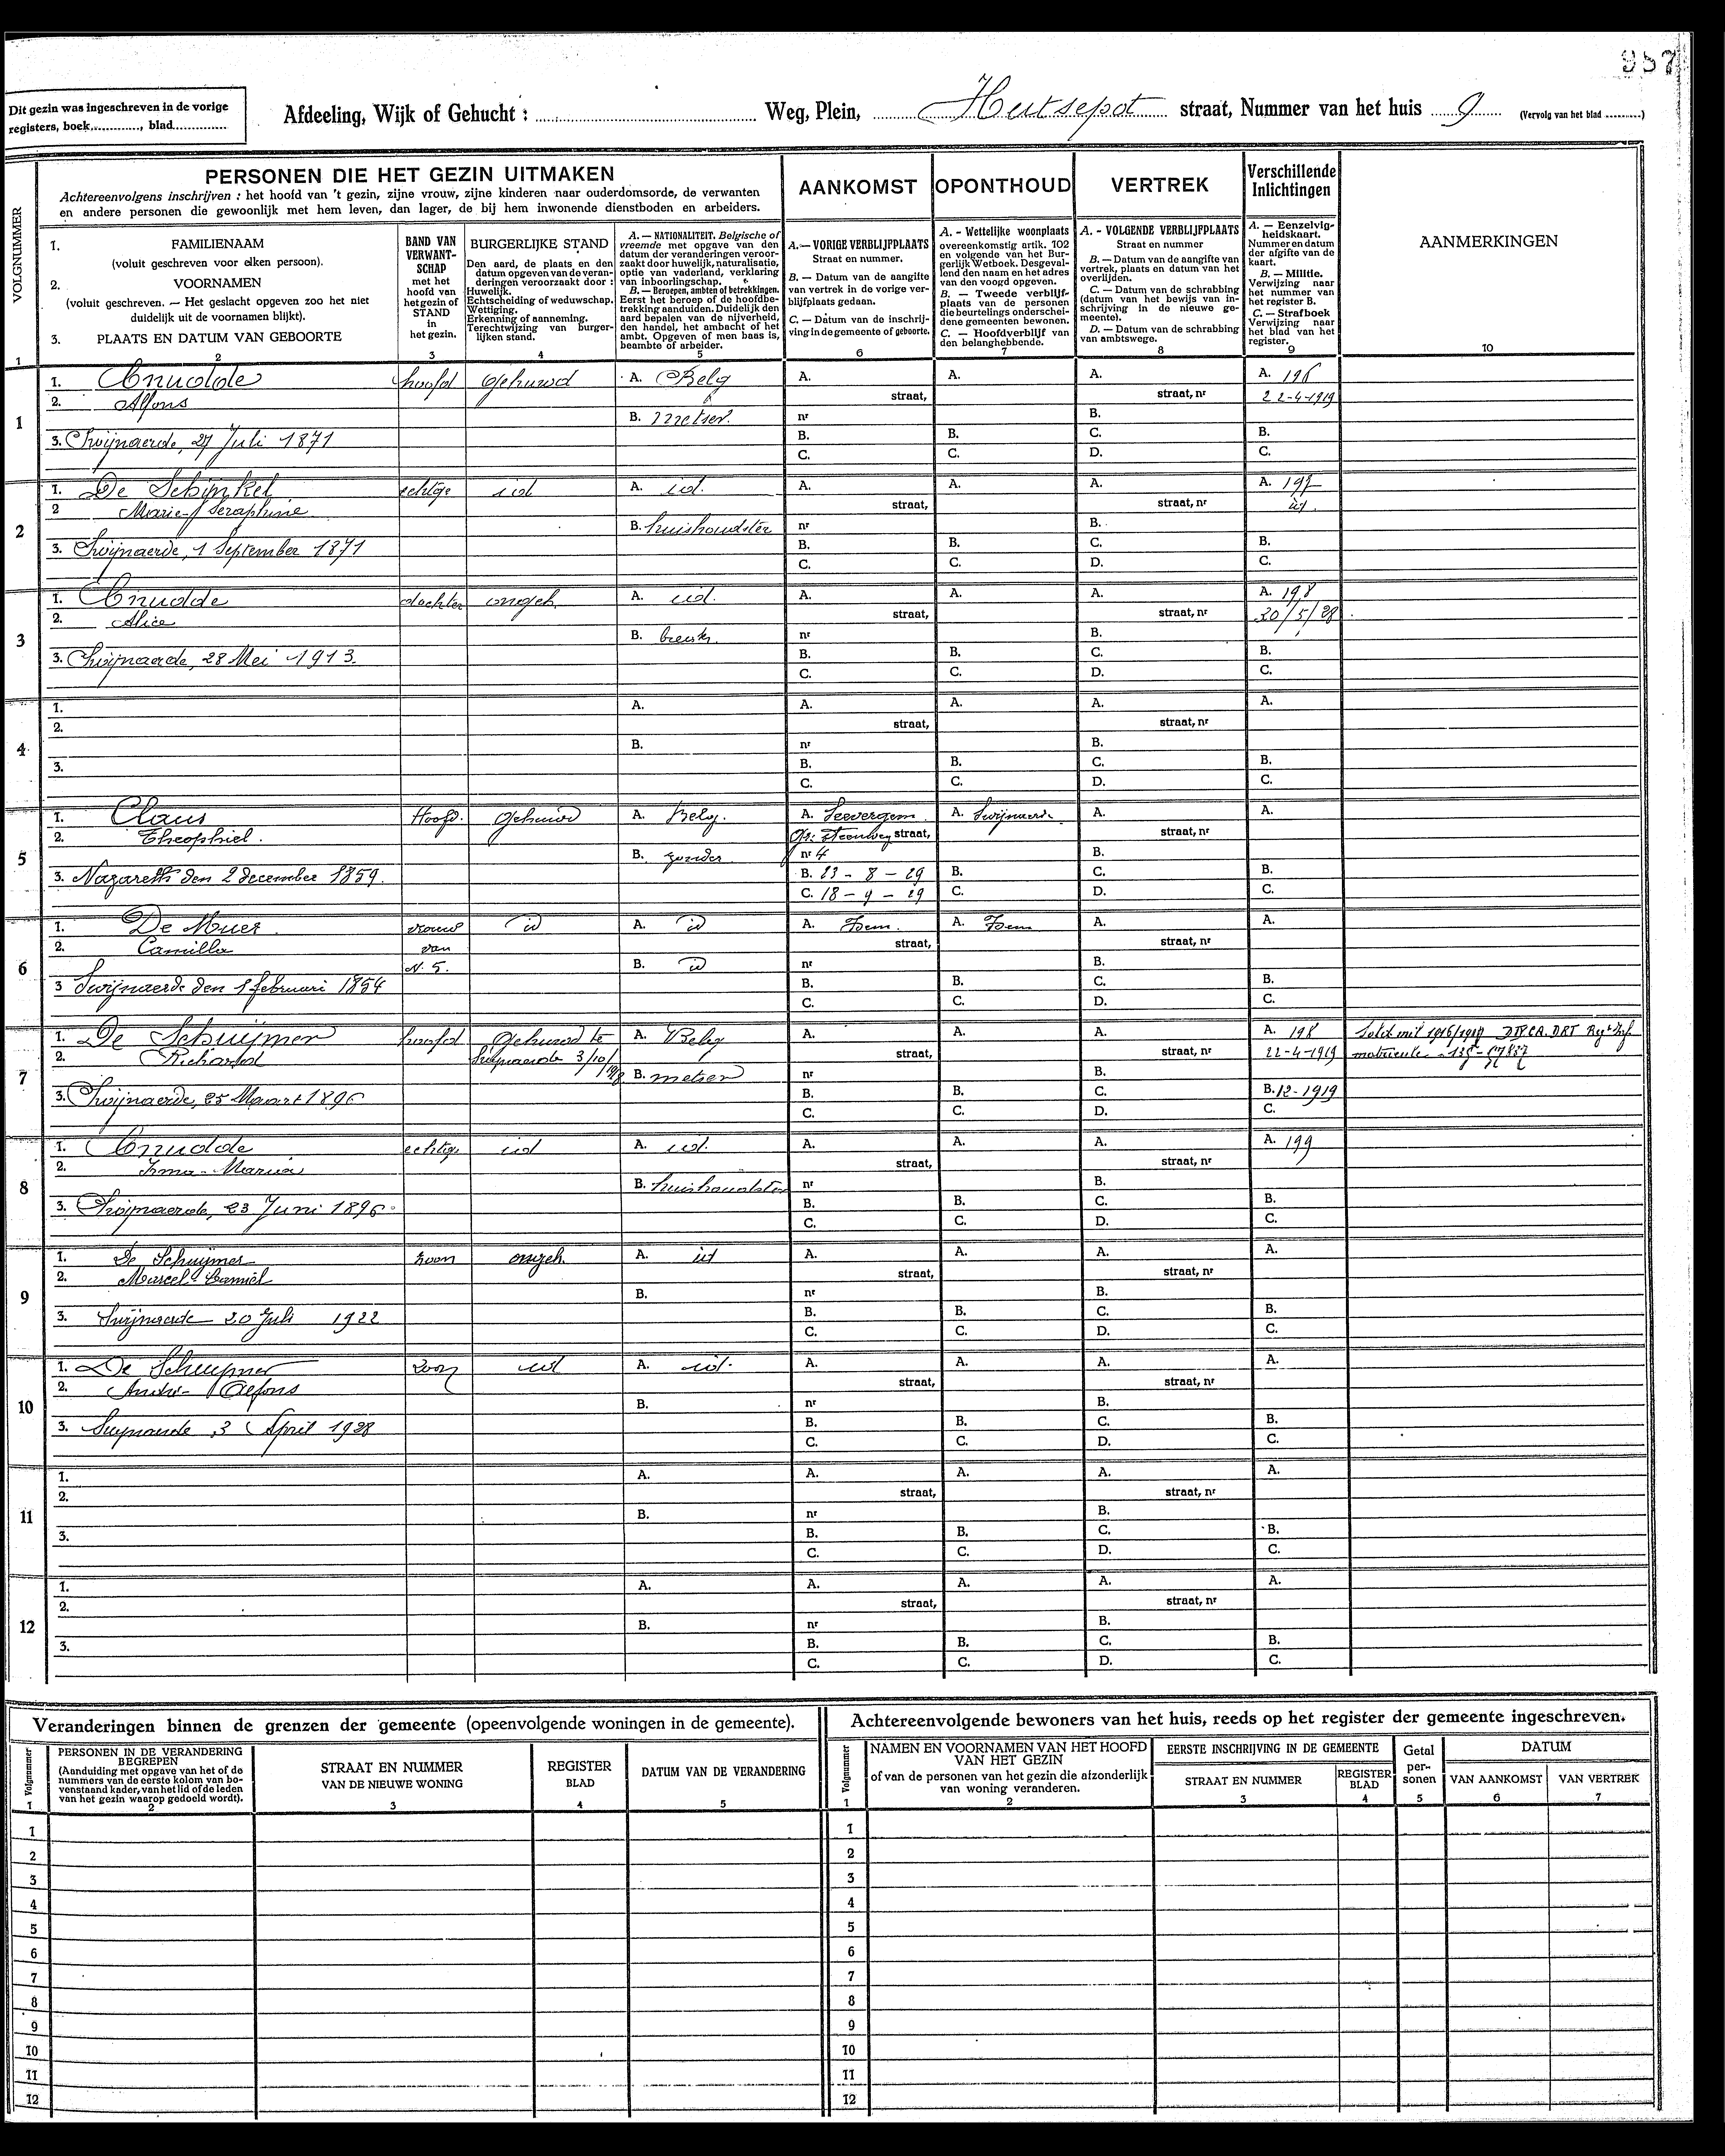 987
Dit gezin was ingeschreven in de vorige
registers, boek............, blad.............
Afdeeling, Wijk of Gehucht : ........ Weg, Plein, Hutsepot straat, Nummer van het huis 9 (Vervolg van het blad ..........)
PERSONEN DIE HET GEZIN UITMAKEN
Achtereenvolgens inschrijven : het hoofd van 't gezin, zijne vrouw, zijne kinderen naar ouderdomsorde, de verwanten
en andere personen die gewoonlijk met hem leven, dan lager, de bij hem inwonende dienstboden en arbeiders.
AANKOMST
OPONTHOUD
VERTREK
Verschillende
Inlichtingen
AANMERKINGEN
10
VOLGNUMMER
1
1. FAMILIENAAM
(voluit geschreven voor elken persoon).
2. VOORNAMEN
(voluit geschreven. — Het geslacht opgeven zoo het niet
duidelijk uit de voornamen blijkt).
3. PLAATS EN DATUM VAN GEBOORTE
2
BAND VAN
VERWANT-
SCHAP
met het
hoofd van
het gezin of
STAND
in
het gezin.
3
BURGERLIJKE STAND
Den aard, de plaats en den
datum opgeven van de veran-
deringen veroorzaakt door :
Huwelijk.
Echtscheiding of weduwschap.
Wettiging.
Erkenning of aanneming.
Terechtwijzing van burger-
lijken stand.
4
A. — NATIONALITEIT. Belgische of
vreemde met opgave van den
datum der veranderingen veroor-
zaakt door huwelijk, naturalisatie,
optie van vaderland, verklaring
van inboorlingschap.
B. — Beroepen, ambten of betrekkingen.
Eerst het beroep of de hoofdbe-
trekking aanduiden. Duidelijk den
aard bepalen van de nijverheid,
den handel, het ambacht of het
ambt. Opgeven of men baas is,
beambte of arbeider.
5
A. — VORIGE VERBLIJFPLAATS
Straat en nummer.
B. — Datum van de aangifte
van vertrek in de vorige ver-
blijfplaats gedaan.
C. — Datum van de inschrij-
ving in de gemeente of geboorte.
6
A. - Wettelijke woonplaats
overeenkomstig artik. 102
en volgende van het Bur-
gerlijk Wetboek. Desgeval-
lend den naam en het adres
van den voogd opgeven.
B. — Tweede verblijf-
plaats van de personen
die beurtelings onderschei-
dene gemeenten bewonen.
C. — Hoofdverblijf van
den belanghebbende.
7
A. - VOLGENDE VERBLIJFPLAATS
Straat en nummer
B. — Datum van de aangifte van
vertrek, plaats en datum van het
overlijden.
C. — Datum van de schrabbing
(datum van het bewijs van in-
schrijving in de nieuwe ge-
meente).
D. — Datum van de schrabbing
van ambtswege.
8
A. — Eenzelvig-
heidskaart.
Nummer en datum
der afgifte van de
kaart.
B. — Militie.
Verwijzing naar
het nummer van
het register B.
C. — Strafboek
Verwijzing naar
het blad van het
register.
9
1
1. Cnudde hoofd gehuwd A. Belg A. A. A. A. 196
2. Alfons straat, straat, nr 22-4-1919
B. metser. nr B.
3. Swijnaerde, 27 Juli 1871 B. B. C. B.
C. C. D. C.
2
1. De Schinkel echtge id A. id. A. A. A. A. 197
2 Marie-Seraphine straat, straat, nr id.
B. huishoudster nr B.
3. Swijnaerde, 1 September 1871 B. B. C. B.
C. C. D. C.
3
1. Cnudde dochter ongeh. A. id. A. A. A. A. 198
2. Alice straat, straat, nr 20/5/28
B. nr B.
3. Swijnaerde, 28 Mei 1913. B. B. C. B.
C. C. D. C.
4
1. A. A. A. A. A.
2. straat, straat, nr
B. nr B.
3. B. B. C. B.
C. C. D. C.
5
1. Claus Hoofd. gehuwd A. Belg. A. Seevergem. A. Swijnaerde A. A.
2. Theophiel. Gr. steenweg straat, straat, nr
B. zonder nr 4 B.
3. Nazareth den 2 december 1859. B. 23 - 8 - 29 B. C. B.
C. 18 - 9 - 29 C. D. C.
6
1. De Muer vrouw id A. id A. Idem. A. Idem A. A.
2. Camilla van straat, straat, nr
N. 5. B. id nr B.
3 Swijnaerde den 1 februari 1854 B. B. C. B.
C. C. D. C.
7
1. De Schuijmer hoofd gehuwd te A. Belg A. A. A. A. 198
2. Richard Swijnaerde 3/10/ straat, straat, nr 22-4-1919 matricule
B. metser nr B.
3. Swijnaerde, 25 Maart 1896 B. B. C. B. 12-1919
C. C. D. C.
8
1. Cnudde echtge id A. id. A. A. A. A. 199
2. Irma-Maria straat, straat, nr
B. huishoudster nr B.
3. Swijnaerde, 23 Juni 1896 B. B. C. B.
C. C. D. C.
9
1. De Schuijmer zoon ongeh. A. id A. A. A. A.
2. Marcel-Camiel straat, straat, nr
B. nr B.
3. Swijnaerde 20 Juli 1922 B. B. C. B.
C. C. D. C.
10
1. De Schuymer zoon id A. id. A. A. A. A.
2. André-Alfons straat, straat, nr
B. nr B.
3. Swynaerde 3 April 1928 B. B. C. B.
C. C. D. C.
11
1. A. A. A. A. A.
2. straat, straat, nr
B. nr B.
3. B. B. C. B.
C. C. D. C.
12
1. A. A. A. A. A.
2. straat, straat, nr
B. nr B.
3. B. B. C. B.
C. C. D. C.
Veranderingen binnen de grenzen der gemeente (opeenvolgende woningen in de gemeente).
Volgnummer
1
PERSONEN IN DE VERANDERING
BEGREPEN
(Aanduiding met opgave van het of de
nummers van de eerste kolom van bo-
venstaand kader, van het lid of de leden
van het gezin waarop gedoeld wordt).
2
STRAAT EN NUMMER
VAN DE NIEUWE WONING
3
REGISTER
BLAD
4
DATUM VAN DE VERANDERING
5
1
2
3
4
5
6
7
8
9
10
11
12
Achtereenvolgende bewoners van het huis, reeds op het register der gemeente ingeschreven.
Volgnummer
1
NAMEN EN VOORNAMEN VAN HET HOOFD
VAN HET GEZIN
of van de personen van het gezin die afzonderlijk
van woning veranderen.
2
EERSTE INSCHRIJVING IN DE GEMEENTE
STRAAT EN NUMMER
3
REGISTER
BLAD
4
Getal
per-
sonen
5
DATUM
VAN AANKOMST
6
VAN VERTREK
7
1
2
3
4
5
6
7
8
9
10
11
12